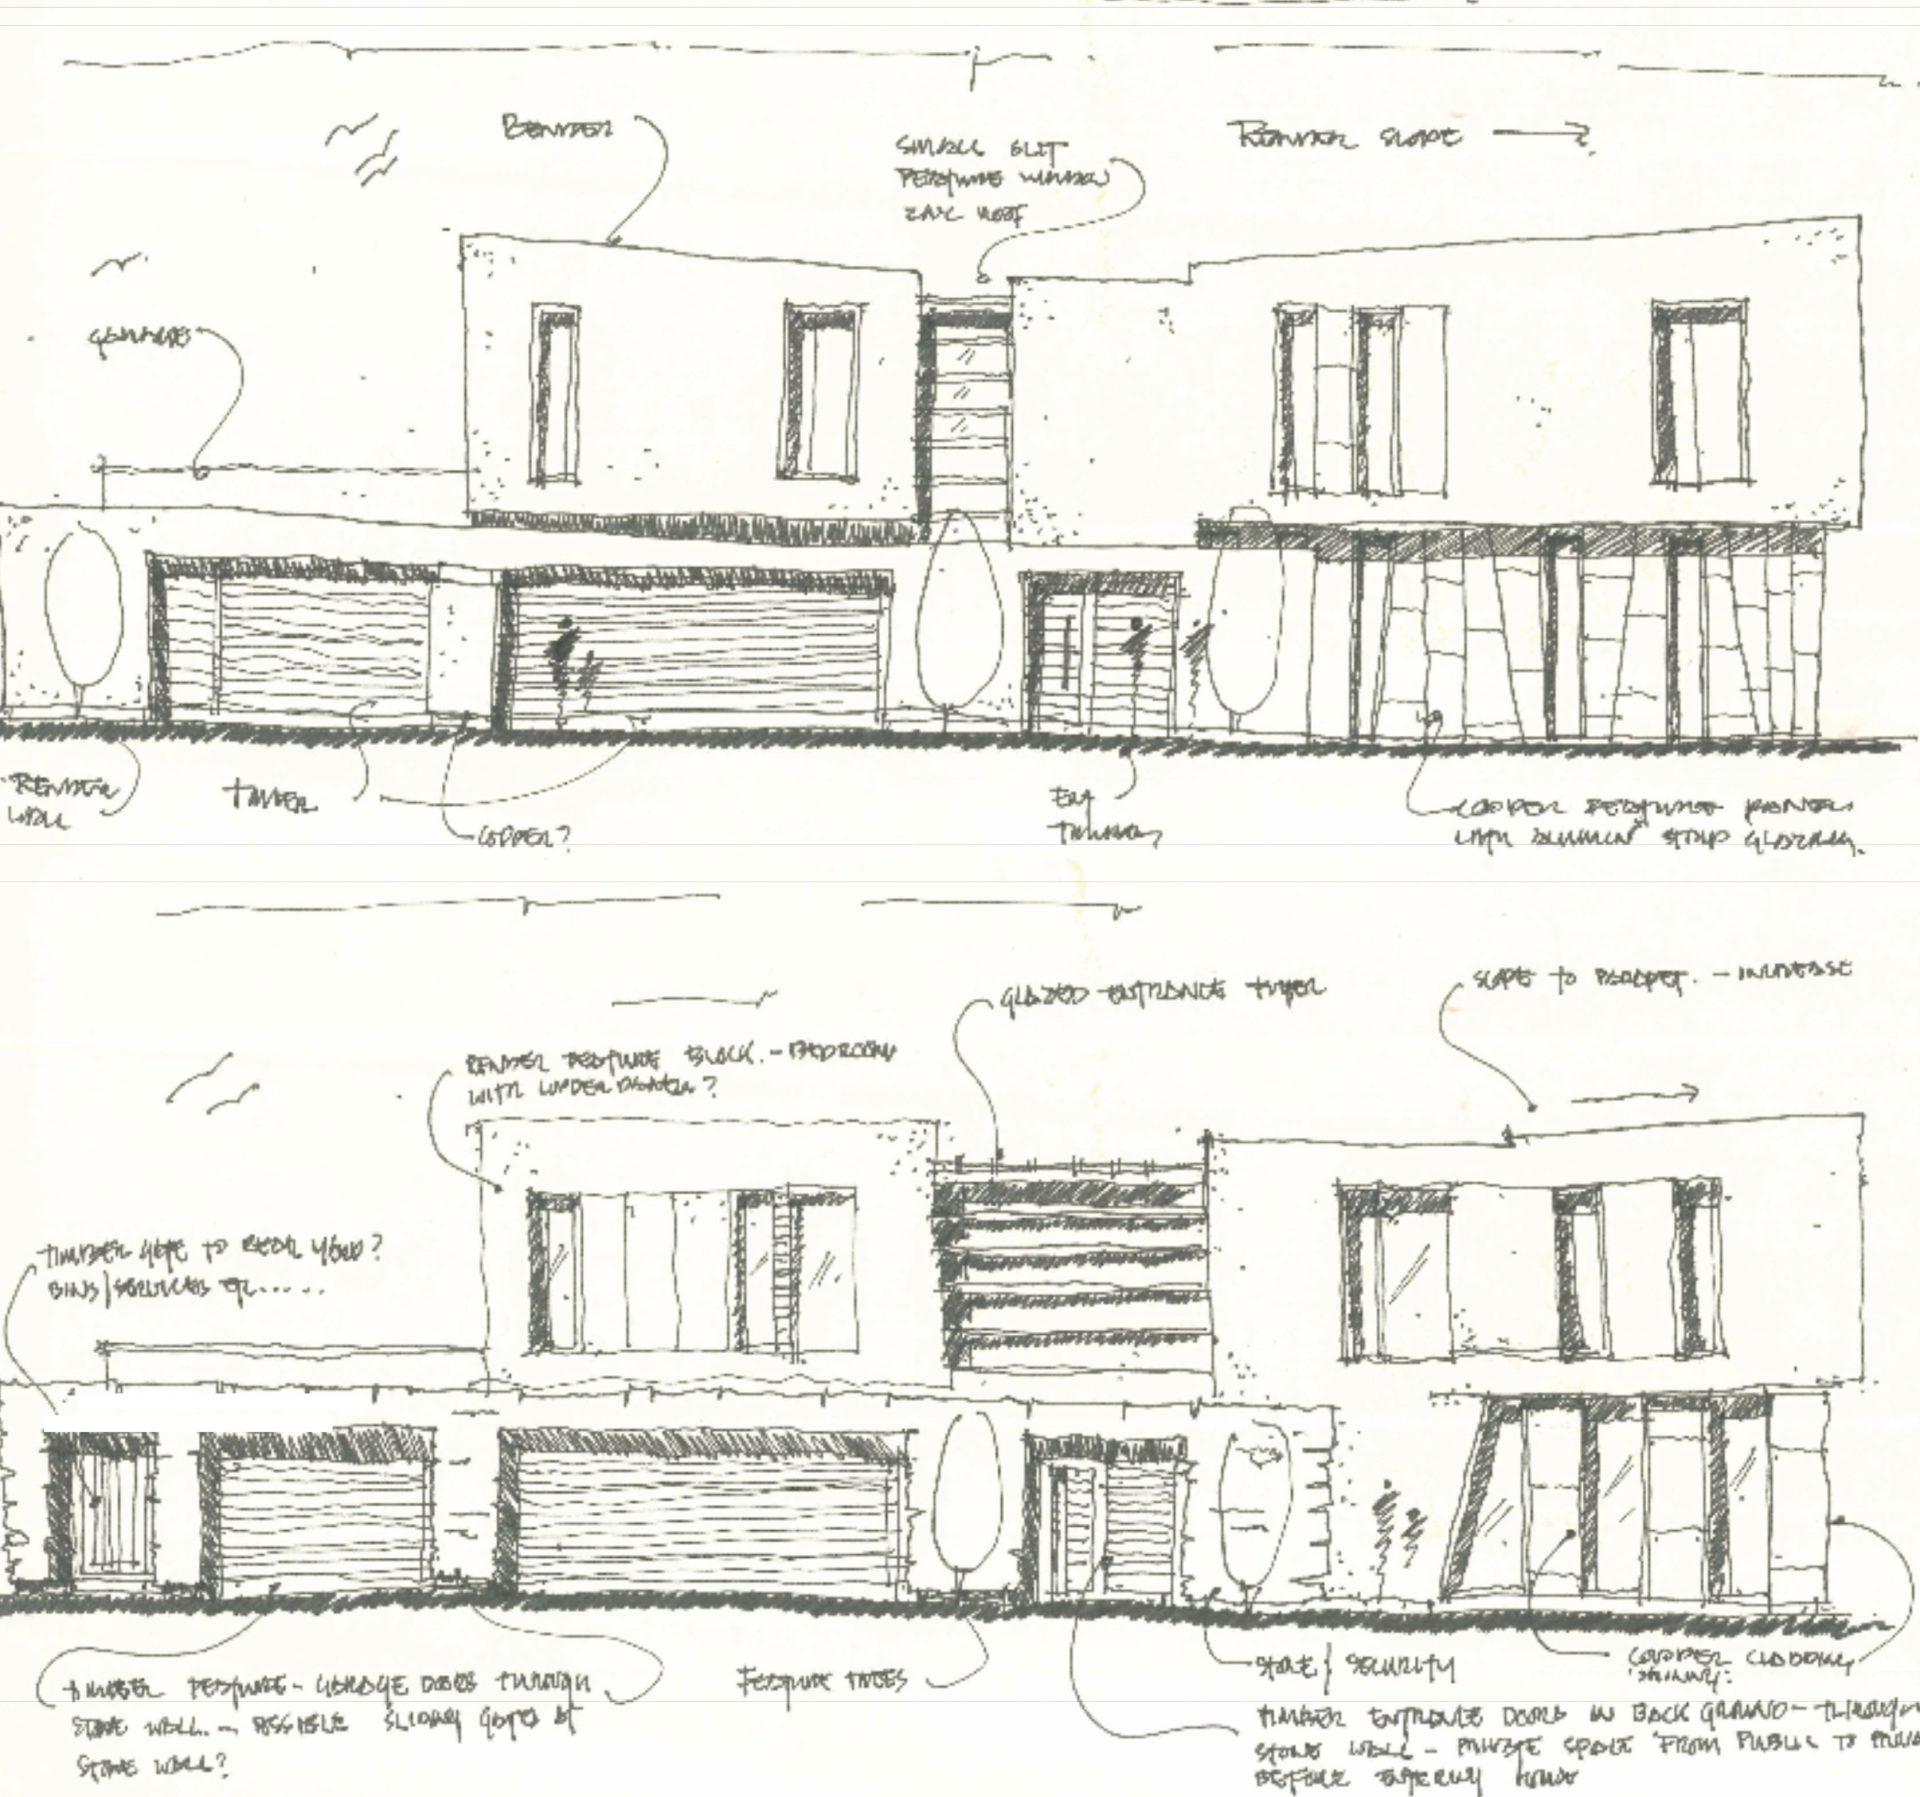 RENDER
SMALL SLIT
FEATURE WINDOW
ZINC ROOF
RENDER SLOPE
RENDER
WALL
TIMBER
COPPER?
COPPER FEATURE PANELS
WITH ALUMIN STRIP GLAZING.
GLAZED ENTRANCE
SLOPE TO PARAPET. - INCREASE
RENDER FEATURE BLOCK. - BEDROOM
WITH
TIMBER GATE TO REAR YARD?
BINS/SERVICES
TIMBER FEATURE - GARAGE DOORS THROUGH
STONE WALL. - POSSIBLE SLIDING GATES AT
STONE WALL?
FEATURE TREES
STONE / SECURITY
COPPER CLADDING
TIMBER ENTRANCE DOORS IN BACK GROUND - THROUGH
STONE WALL - PRIVATE SPACE FROM PUBLIC TO
BEFORE ENTERING